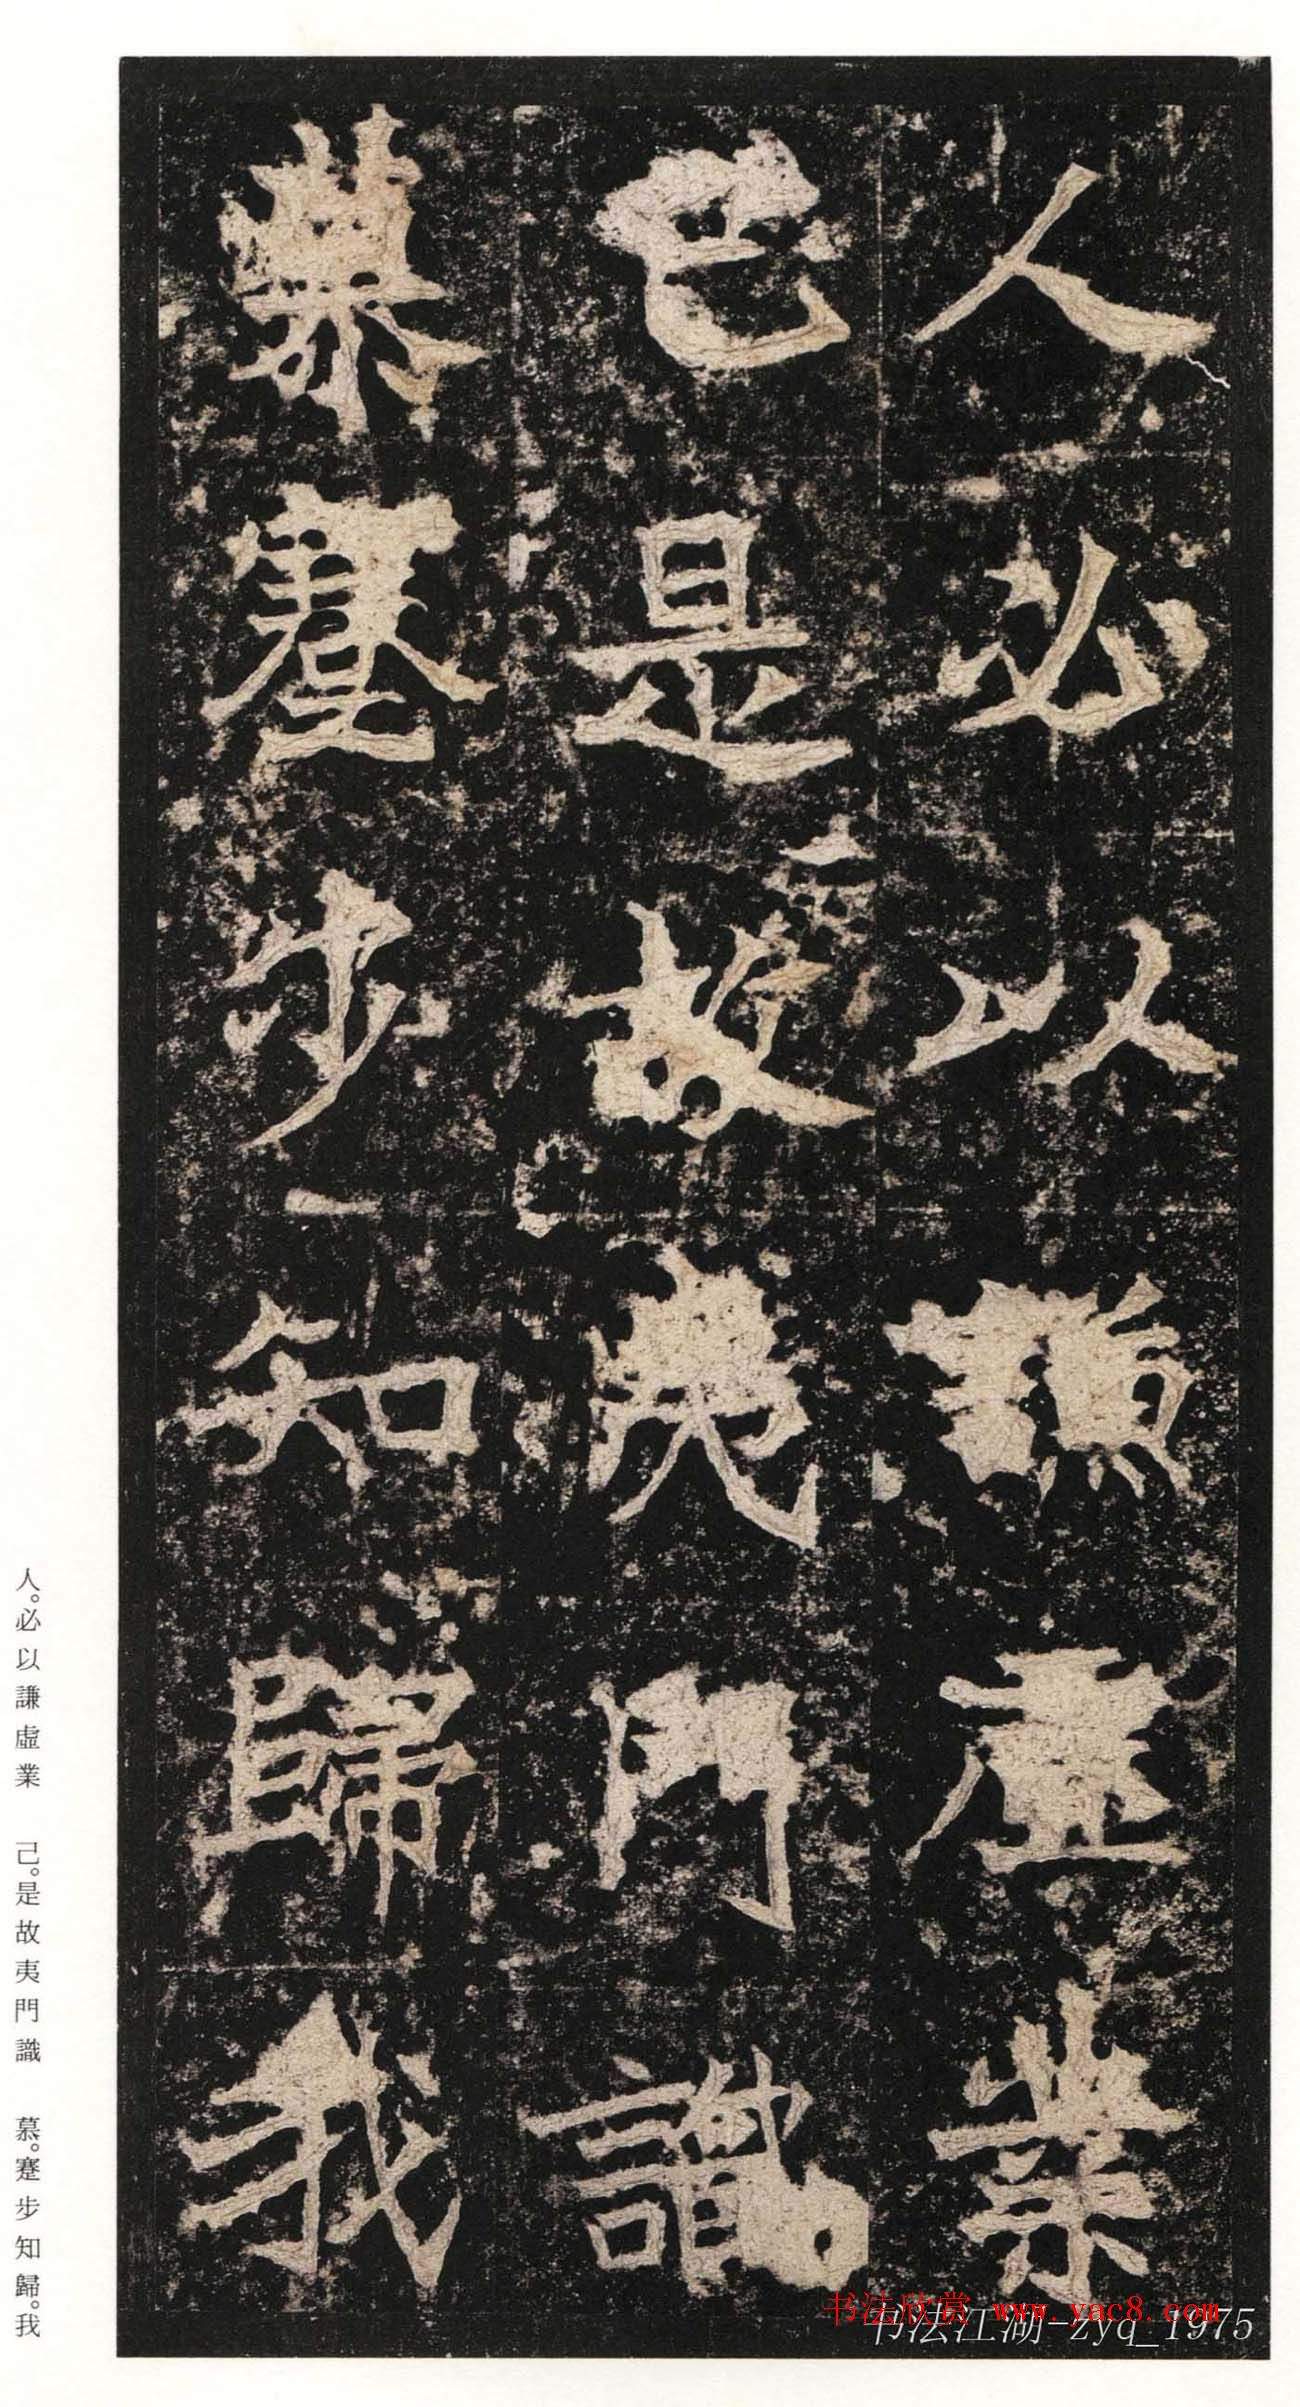 人必以謙虛業
己是故夷門識
慕蹇步知歸我
人。必以謙虛業 己。是故夷門識 慕。蹇步知歸。我
书法欣赏 www.yac8.com
书法江湖-zyq_1975